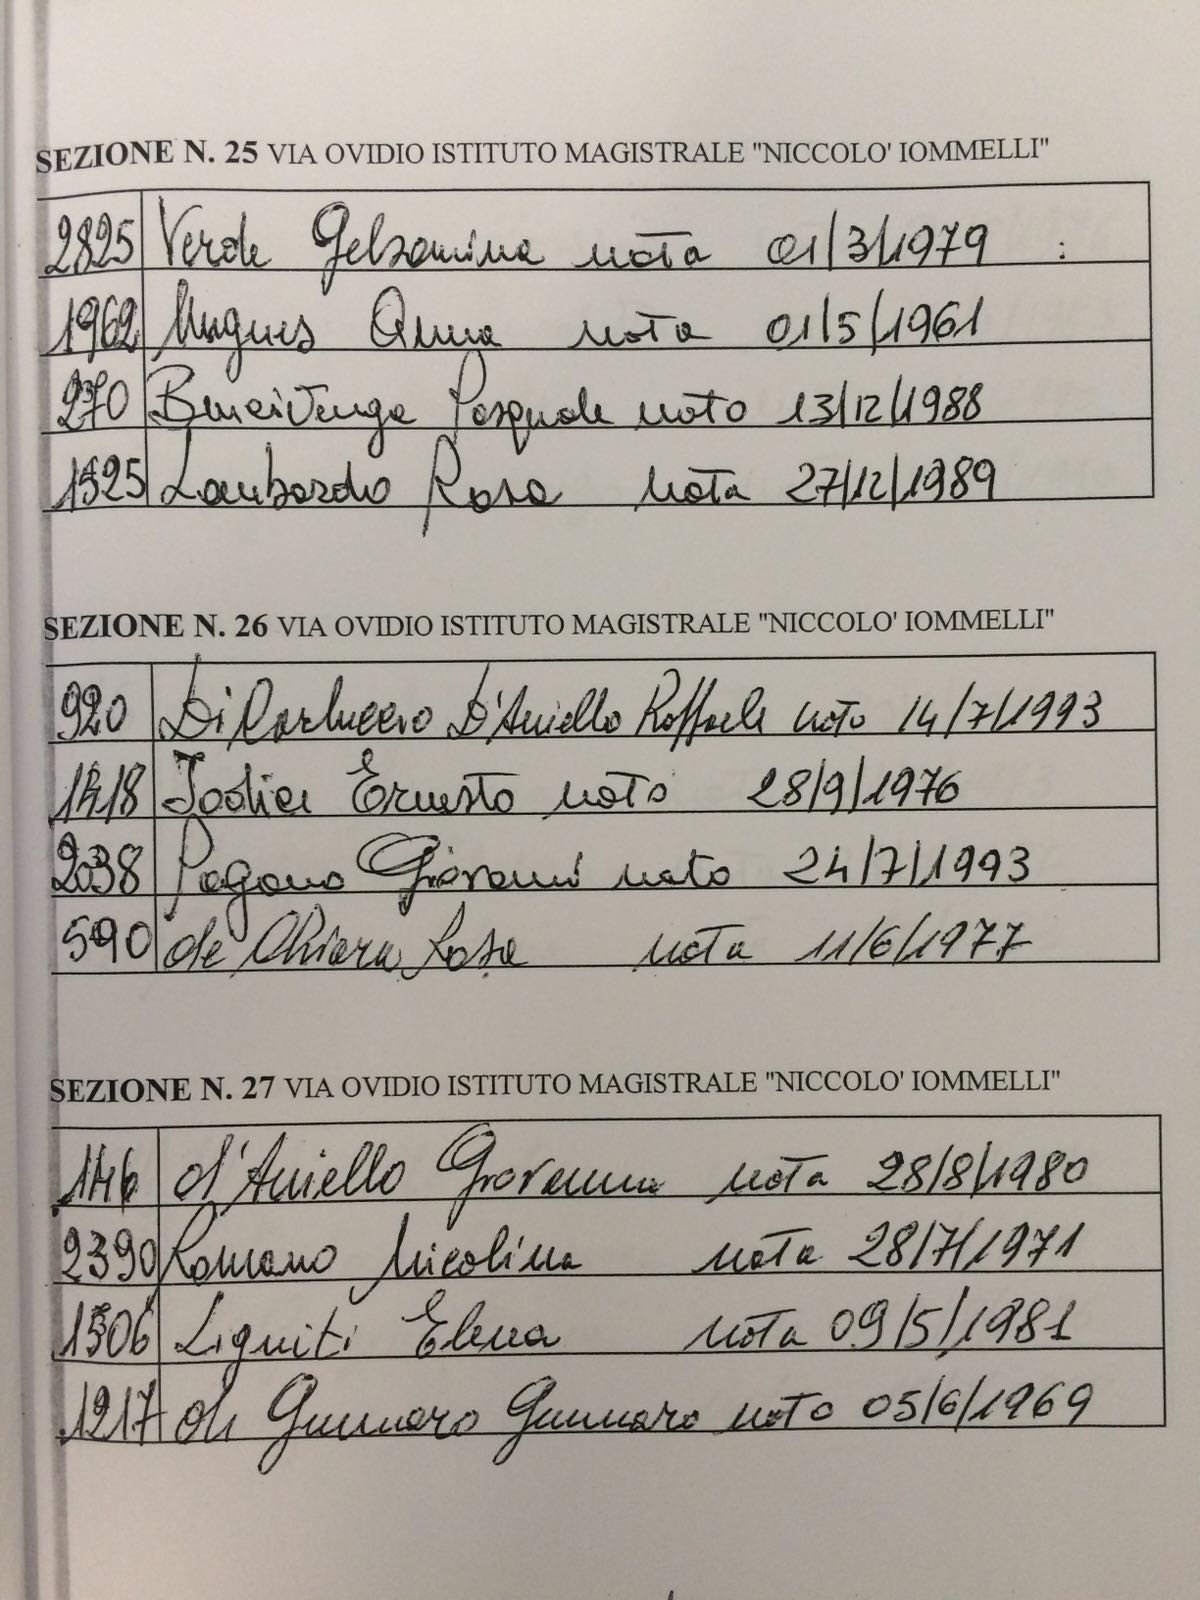 SEZIONE N. 25 VIA OVIDIO ISTITUTO MAGISTRALE "NICCOLO' IOMMELLI"
2825 Verde Gelsomina nata 01/3/1979
1962 Mugnes Anna nata 01/5/1961
270 Bencivenga Pasquale nato 13/12/1988
1525 Lombardo Rosa nata 27/12/1989
SEZIONE N. 26 VIA OVIDIO ISTITUTO MAGISTRALE "NICCOLO' IOMMELLI"
920 Di Carluccio D'Aniello Raffaele nato 14/7/1993
1418 Iodice Ernesto nato 28/9/1976
2038 Pagano Giovanni nato 24/7/1993
590 de Chiara Rosa nata 11/6/1977
SEZIONE N. 27 VIA OVIDIO ISTITUTO MAGISTRALE "NICCOLO' IOMMELLI"
d'Aniello Giovanna nata 28/8/1980
2390 Romano Nicolina nata 28/7/1971
1506 Liguiti Elena nata 09/5/1981
1217 di Gennaro Gennaro nato 05/6/1969